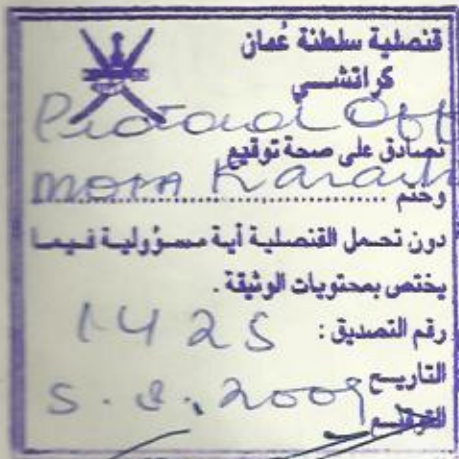 قنصلية سلطنة عُمان
كراتشـــي
Protocol Off
تصادق على صحة توقيع
MOFA Karachi
وختم ....................
دون تحـمل القنصلية أية مسـؤولية فـيمـا
يختص بمحتويات الوثيقة .
رقم التصديق : 1425
التاريـــخ 5.8.2009
التوقيـــع